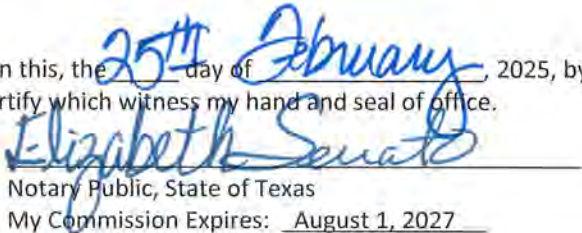 n this, the 25th day of February, 2025, by
rtify which witness my hand and seal of office.
Elizabeth Senato
Notary Public, State of Texas
My Commission Expires: August 1, 2027